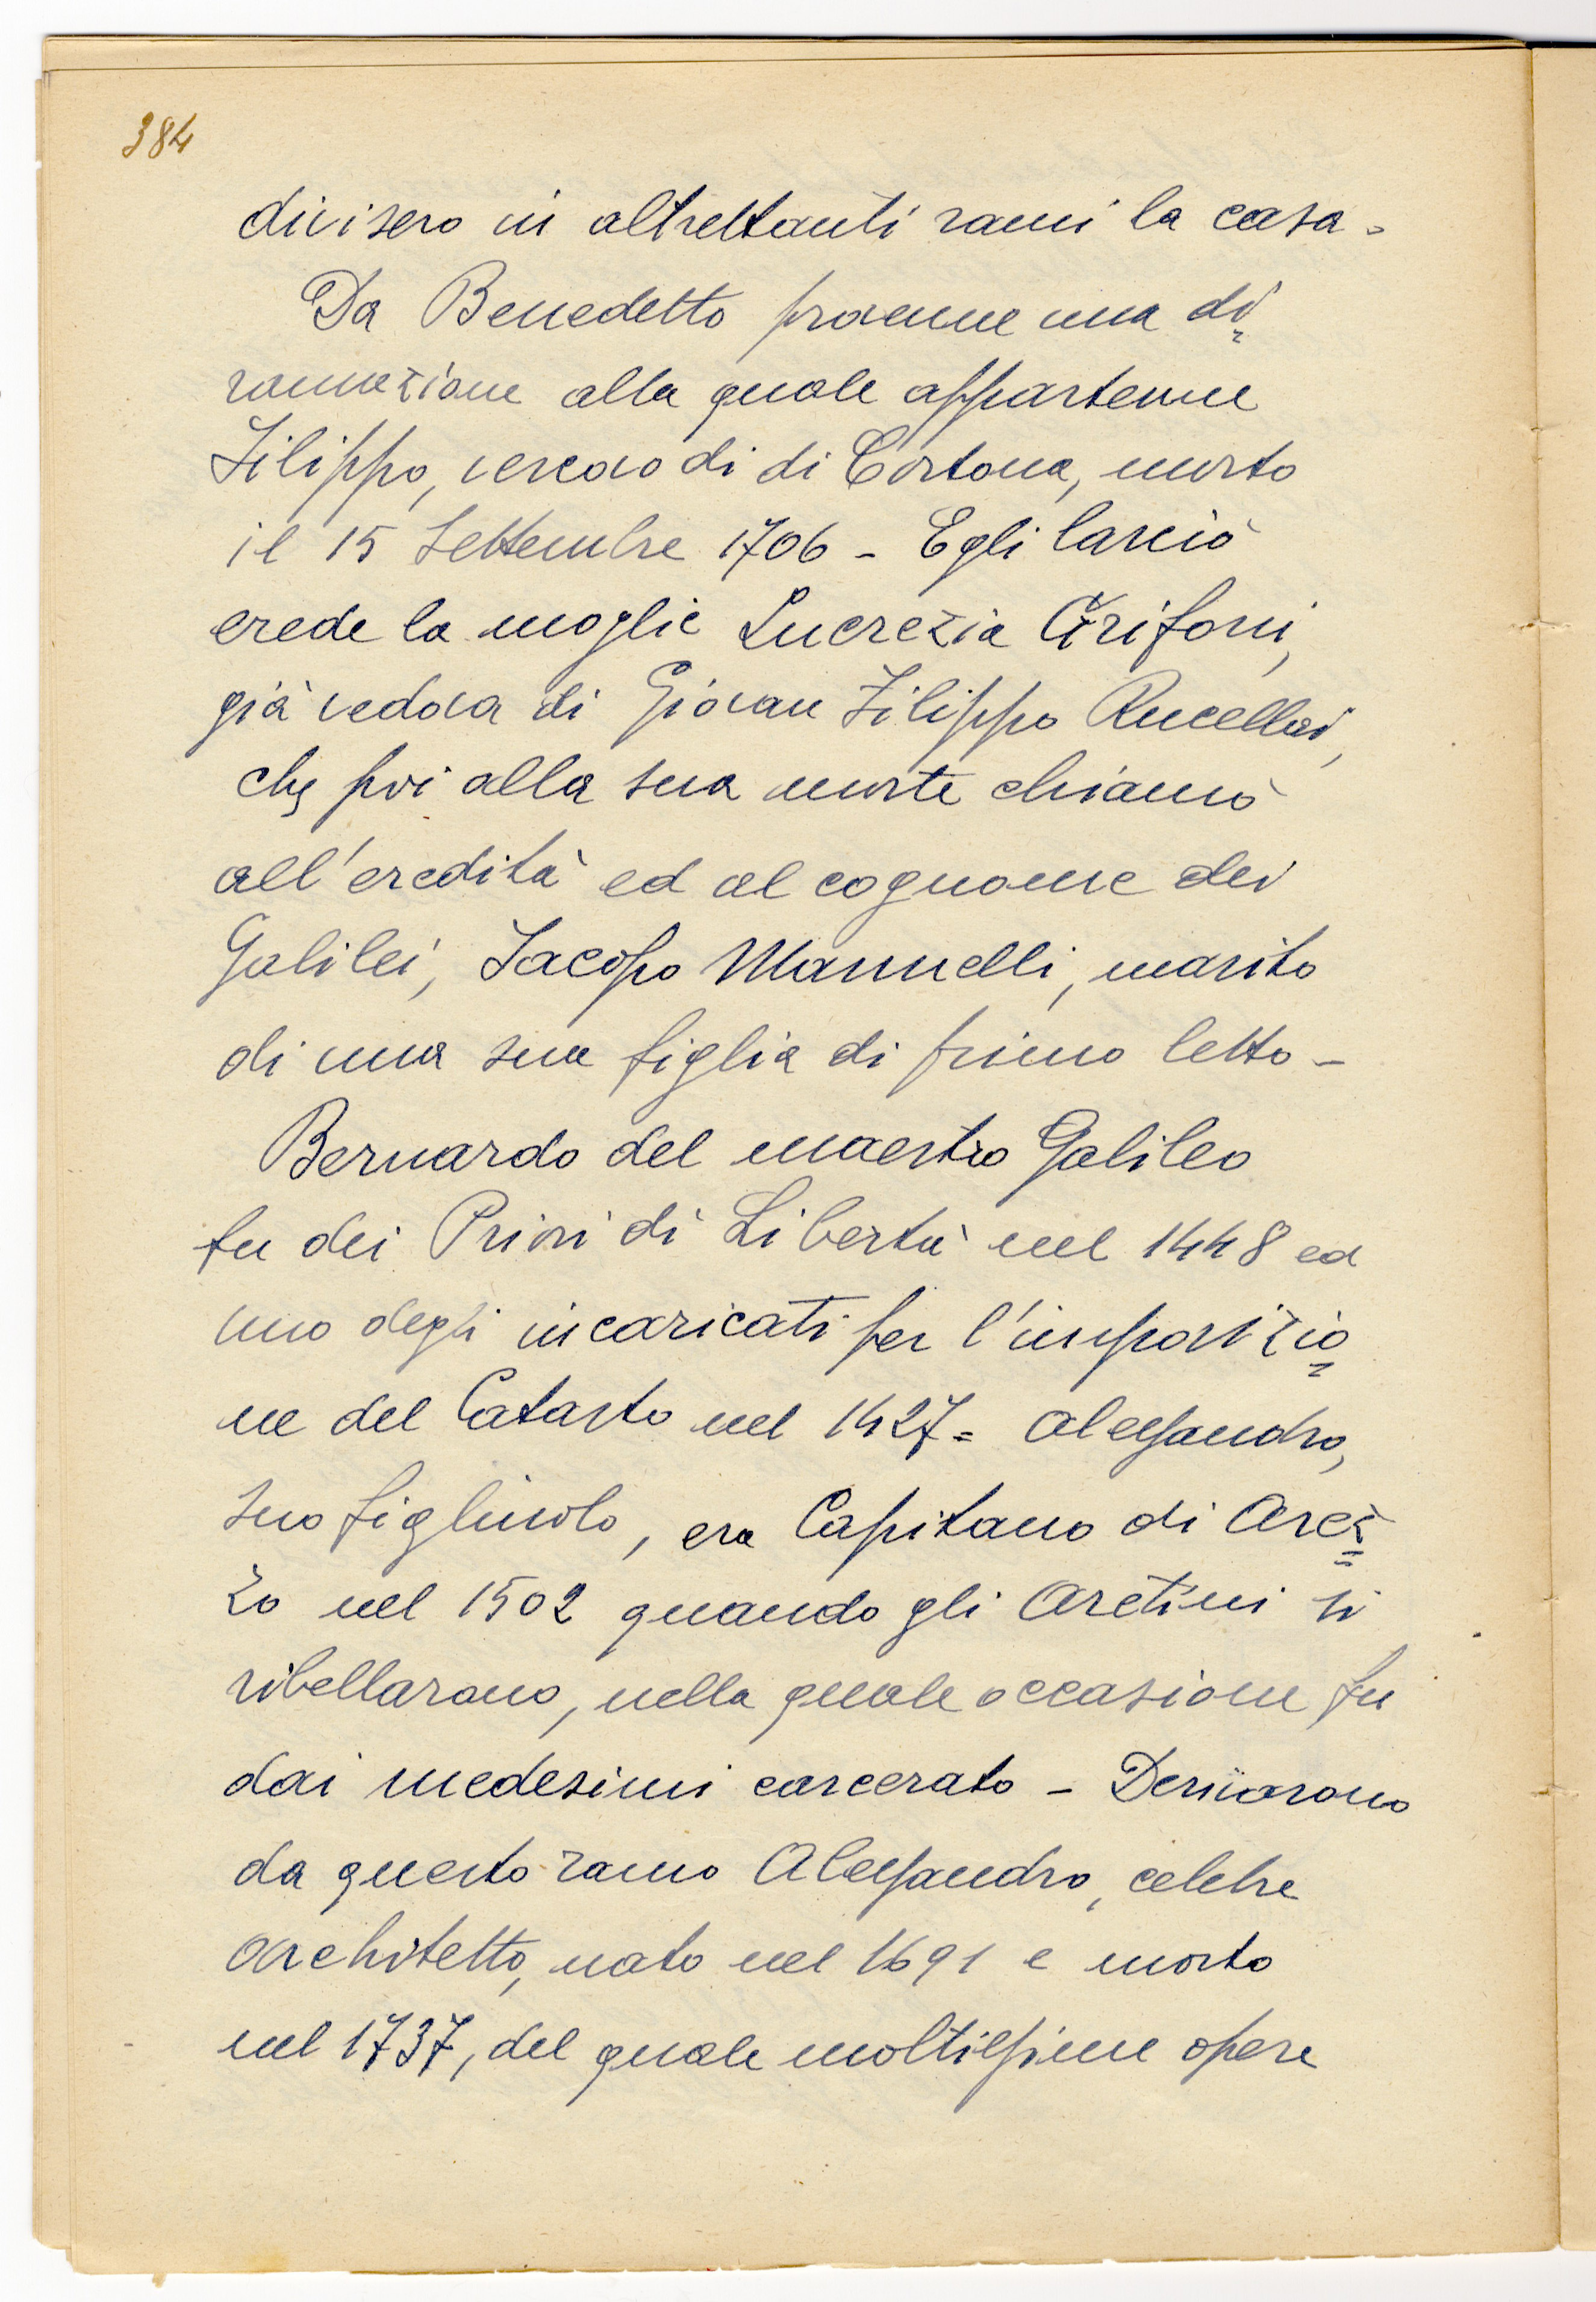 384
divisero in altrettanti rami la casa -
Da Benedetto provenne una di=
ramazione alla quale appartenne
Filippo, vescovo di di Cortona, morto
il 15 Settembre 1706 - Egli lasciò
erede la moglie Lucrezia Grifoni,
già vedova di Giovan Filippo Rucellai,
che poi alla sua morte chiamò
all'eredità ed al cognome dei
Galilei, Jacopo Mannelli, marito
di una sua figlia di primo letto -
Bernardo del maestro Galileo
fu dei Priori di Libertà nel 1448 ed
uno degli incaricati per l'imposizio=
ne del Catasto nel 1427 = Alessandro,
suo figliuolo, era Capitano di Arez=
zo nel 1502 quando gli Aretini si
ribellarono, nella quale occasione fu
dai medesimi carcerato - Derivarono
da questo ramo Alessandro, celebre
architetto, nato nel 1691 e morto
nel 1737, del quale moltissime opere